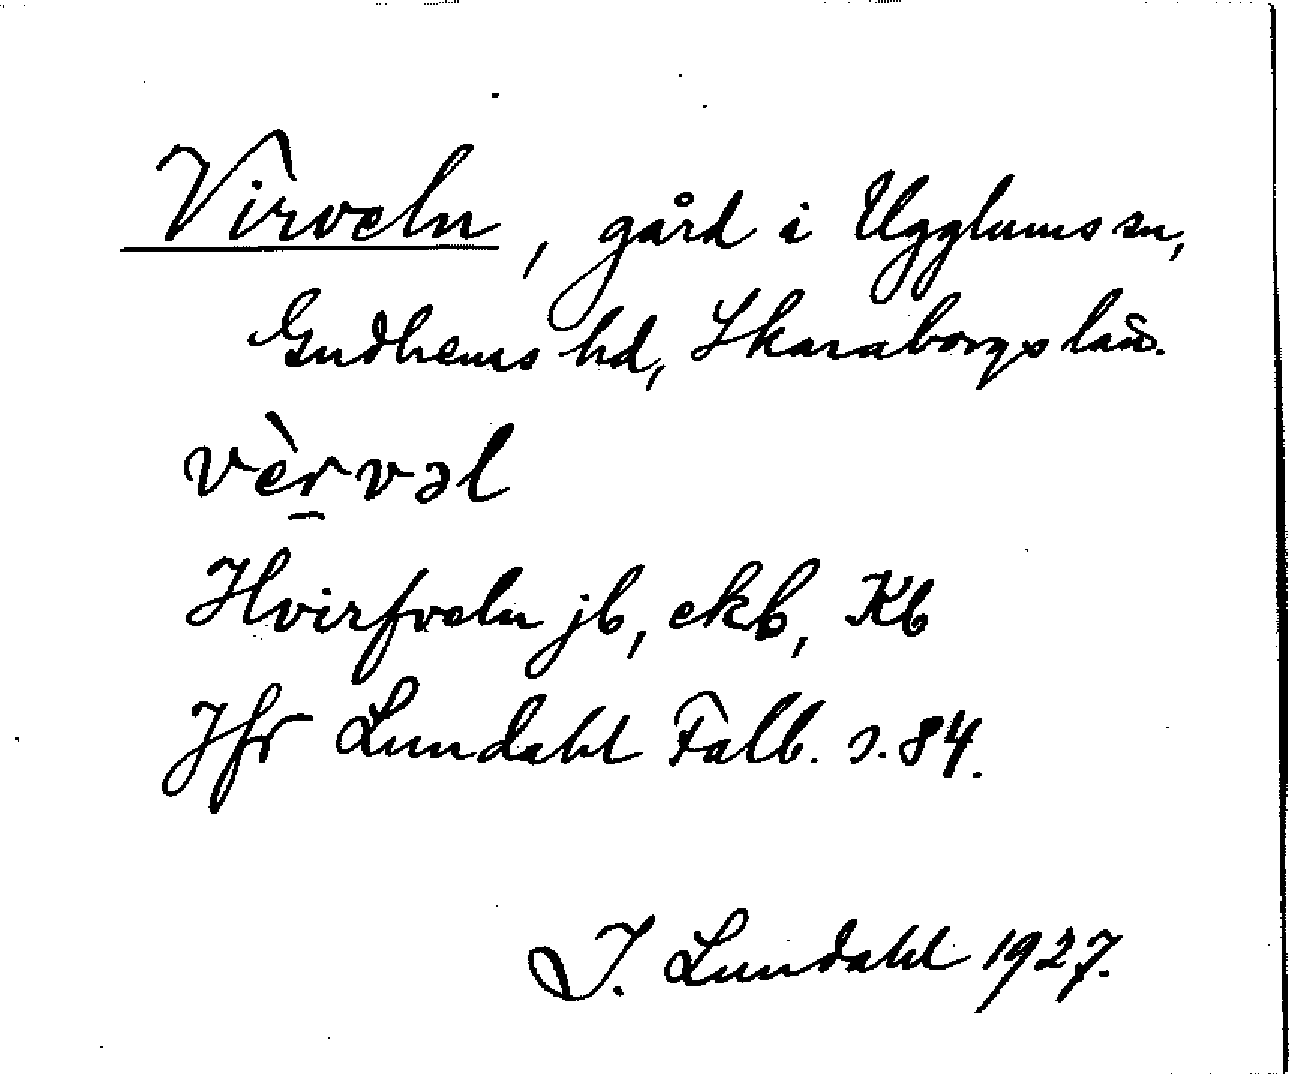 Virveln, gård i Ugglums sn,
Gudhems hd, Skaraborgs län.
vèr̠vəl
Hvirfveln jb, ekb, Kb
Jfr Lundahl Falb. s. 84.
I. Lundahl 1927.